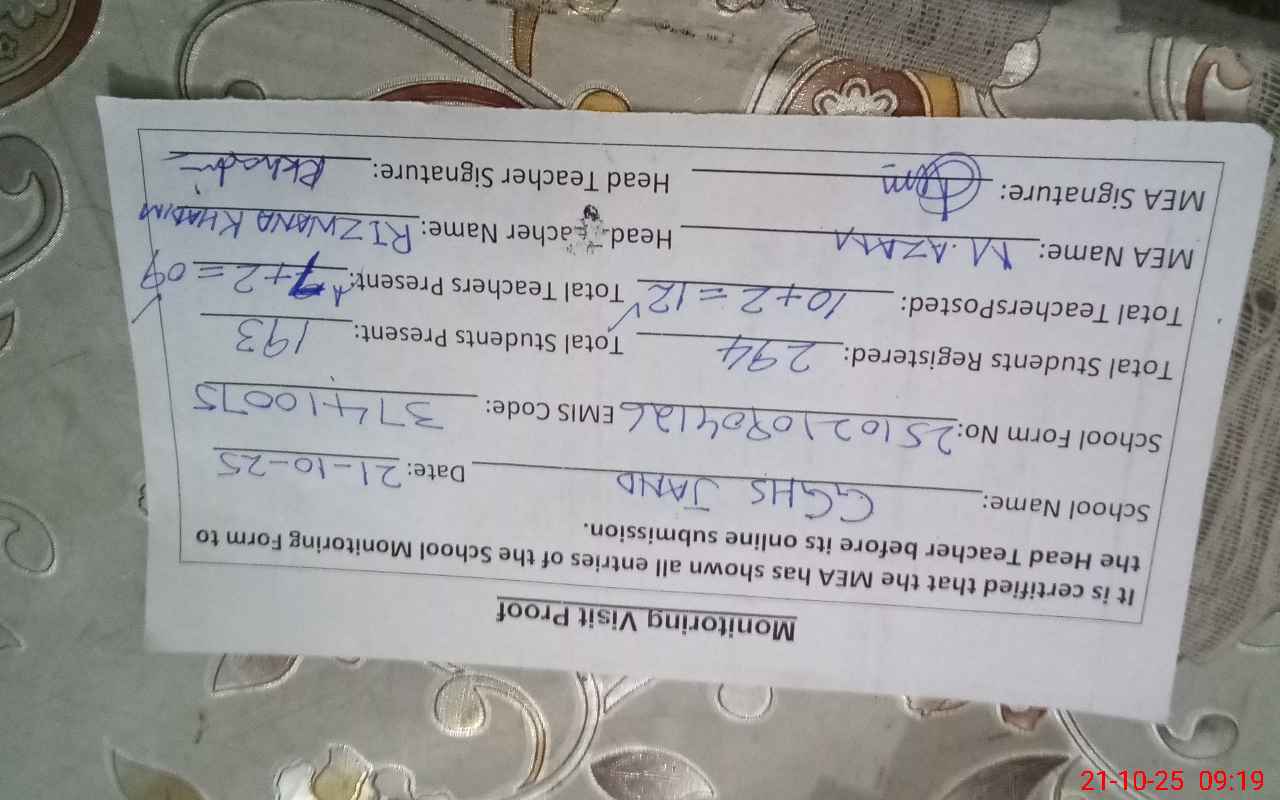 Monitoring Visit Proof
It is certified that the MEA has shown all entries of the School Monitoring Form to
the Head Teacher before its online submission.
School Name: GGHS JAND Date: 21-10-25
School Form No: 2510210904126 EMIS Code: 37410075
Total Students Registered: 294 Total Students Present: 193
Total TeachersPosted: 10+2=12 Total Teachers Present: 7+2=09
MEA Name: M.AZAM Head Teacher Name: RIZWANA KHADIM
MEA Signature: Head Teacher Signature: Rkhadim
21-10-25 09:19